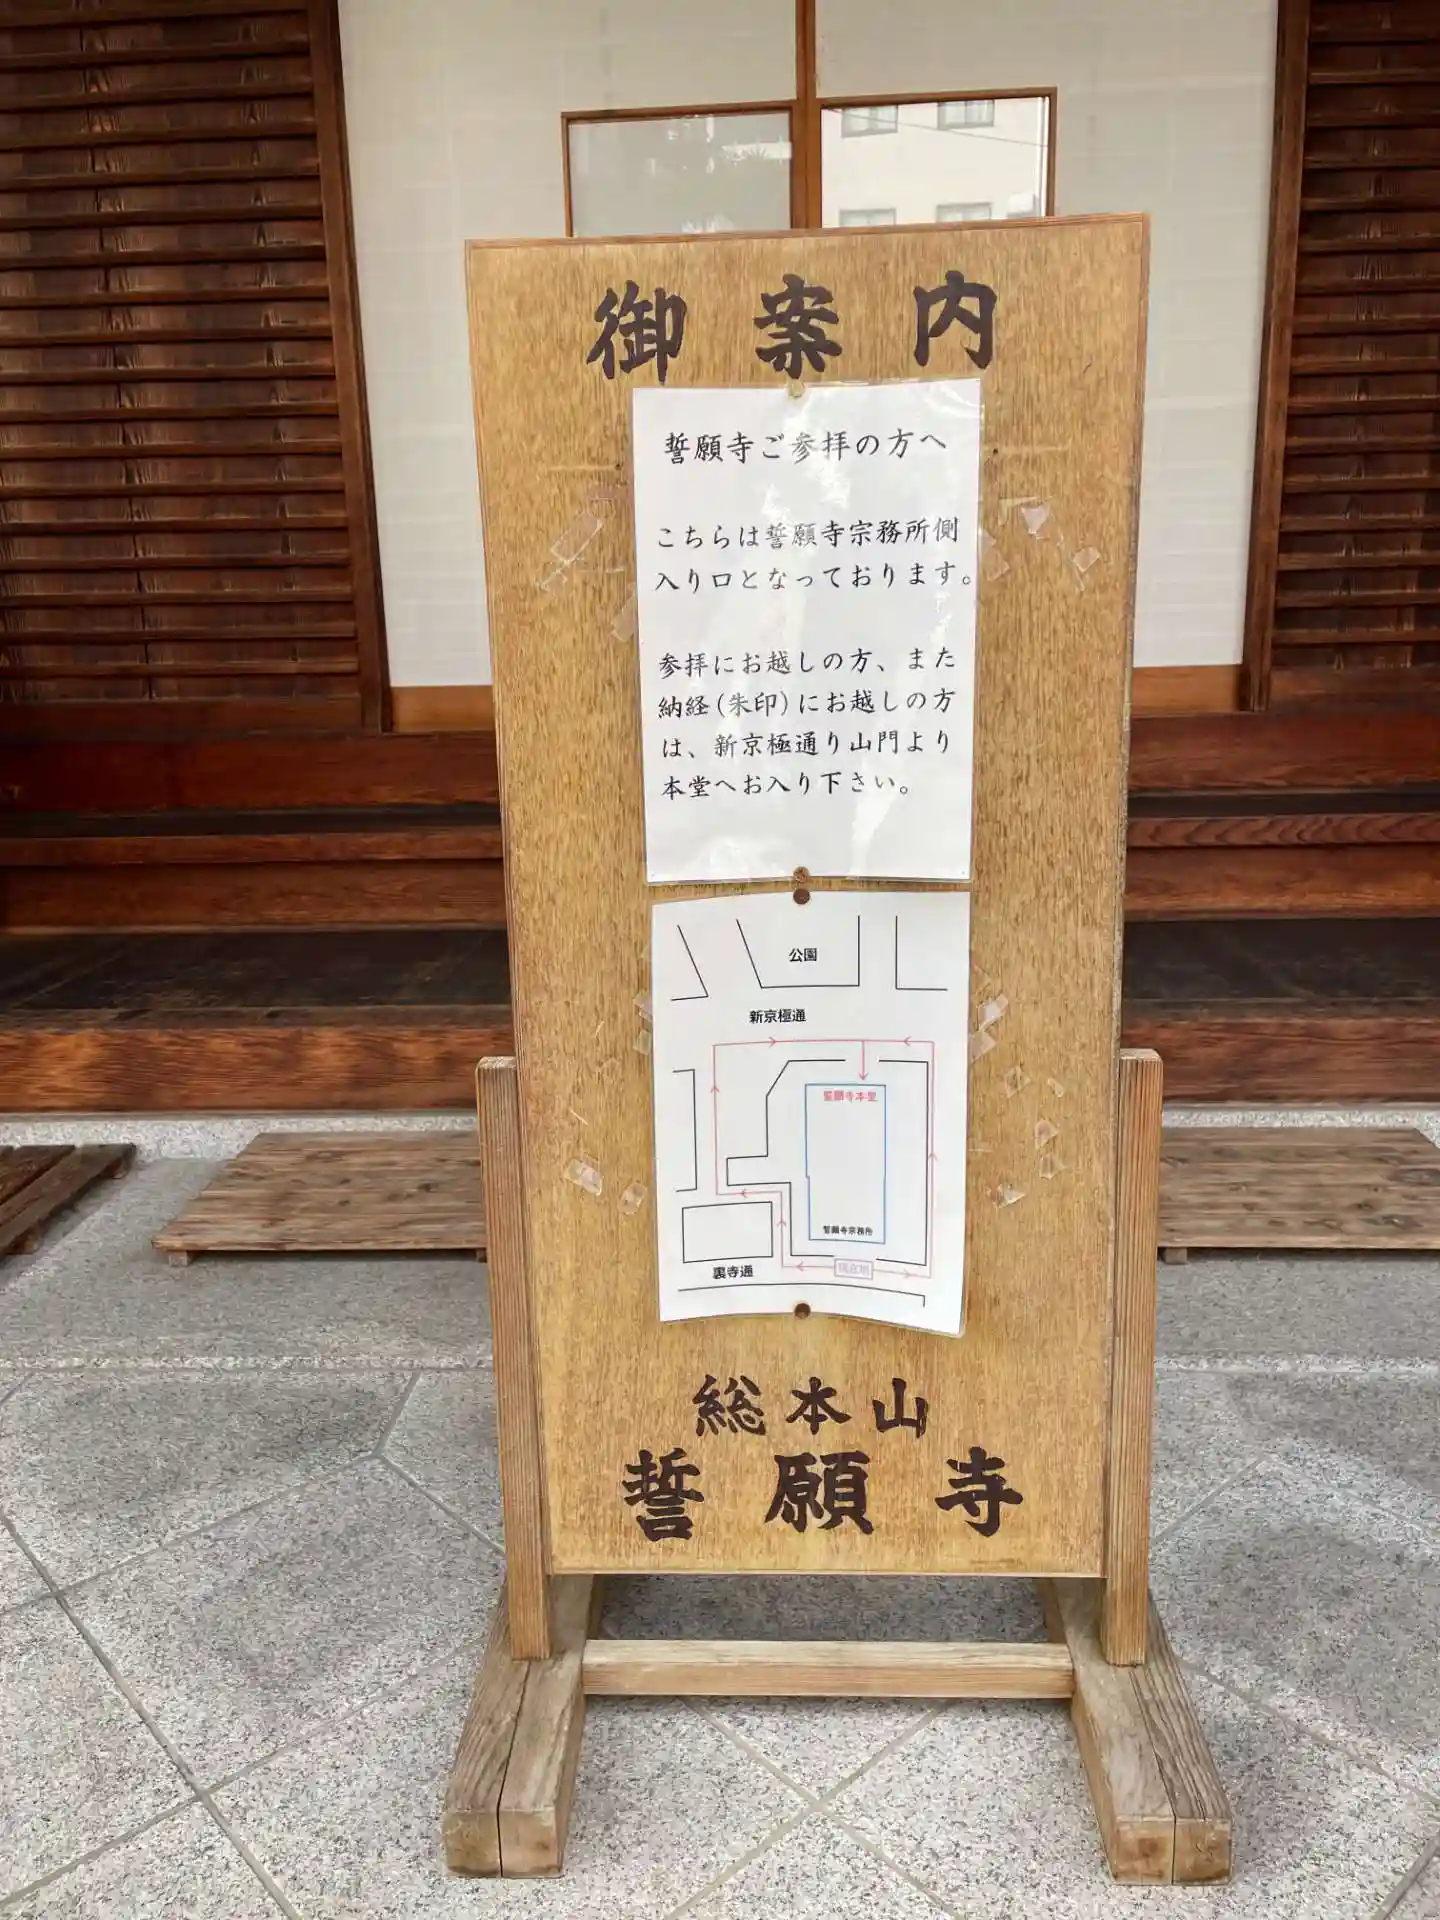 御案内
誓願寺ご参拝の方へ
こちらは誓願寺宗務所側
入り口となっております。
参拝にお越しの方、また
納経(朱印)にお越しの方
は、新京極通り山門より
本堂へお入り下さい。
公園
新京極通
誓願寺本堂
誓願寺宗務所
現在地
裏寺通
総本山
誓願寺